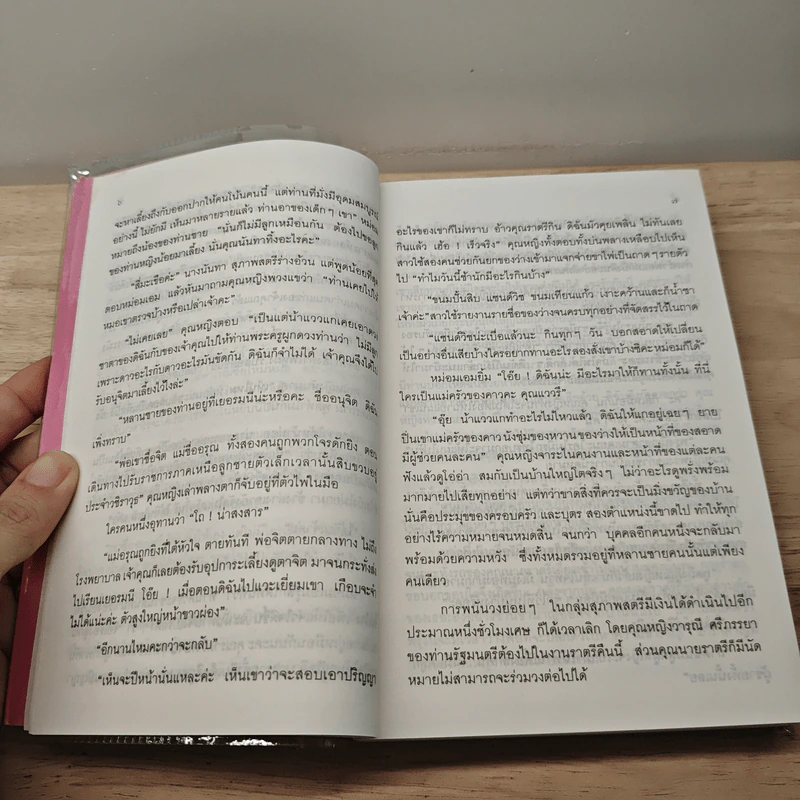 ๖
จะหาเลี้ยงถึงกับออกปากให้คนโน้นคนนี้ แต่ท่านที่มั่งมีอุดมสมบูรณ์
อย่างนี้ ไม่ยักมี เห็นมาหลายรายแล้ว ท่านอาของเด็กๆ เขา” หม่อม
หมายถึงน้องของท่านชาย “นั่นก็ไม่มีลูกเหมือนกัน ต้องไปขอลูก
ของท่านหญิงน้อยมาเลี้ยง นั่นคุณนันทาทิ้งอะไรคะ”
“สี่มะเขือค่ะ” นางนันทา สุภาพสตรีร่างอ้วน แต่พูดน้อยที่สุด
ตอบหม่อมเอม แล้วหันมาถามคุณหญิงพวงแขว่า “ท่านเคยไปให้
หมอเขาตรวจบ้างหรือเปล่าเจ้าคะ”
“ไม่เคยเลย” คุณหญิงตอบ “เป็นแต่น้าแววแกเคยเอาดวง
ชาตาของดิฉันกับของเจ้าคุณไปให้ท่านพระครูผูกดวงท่านว่า ไม่มีลูก
เพราะดาวอะไรกับดาวอะไรมันขัดกัน ดิฉันก็จำไม่ได้ เจ้าคุณจึงได้ไป
รับอนุจิตมาเลี้ยงไว้ไงล่ะ”
“หลานชายของท่านอยู่ที่เยอรมนีน่ะหรือคะ ชื่ออนุจิต ดิฉัน
เพิ่งทราบ”
“พ่อเขาชื่อจิต แม่ชื่ออรุณ ทั้งสองคนถูกพวกโจรดักยิง ตอน
เดินทางไปรับราชการภาคเหนือลูกชายตัวเล็กเวลานั้นสิบขวบอยู่
ประจำวชิราวุธ” คุณหญิงเล่าพลางตาก็จับอยู่ที่ตัวไพ่ในมือ
ใครคนหนึ่งอุทานว่า “โถ ! น่าสงสาร”
“แม่อรุณถูกยิงที่ใต้หัวใจ ตายทันที พ่อจิตตายกลางทาง ไม่ถึง
โรงพยาบาล เจ้าคุณก็เลยต้องรับอุปการะเลี้ยงดูตาจิต มาจนกระทั่งส่ง
ไปเรียนเยอรมนี โอ๊ย ! เมื่อตอนดิฉันไปแวะเยี่ยมเขา เกือบจะจำ
ไม่ได้แน่ะค่ะ ตัวสูงใหญ่หน้าขาวผ่อง”
“อีกนานไหมคะกว่าจะกลับ”
“เห็นจะปีหน้านั่นแหละค่ะ เห็นเขาว่าจะสอบเอาปริญญา
๗
อะไรของเขาก็ไม่ทราบ อ้าวคุณราตรีกิน ดิฉันมัวคุยเพลิน ไม่ทันเลย
กินแล้ว เฮ้อ ! เร็วจริง” คุณหญิงทั้งตอบทั้งบ่นพลางเหลือบไปเห็น
สาวใช้สองคนช่วยกันยกของว่างเข้ามาแจกจ่ายขาไพ่เป็นถาดๆ รายตัว
ไป “ทำไมวันนี้ช้านักมีอะไรกินบ้าง”
“ขนมปั้นสิบ แซนด์วิช ขนมเทียนแก้ว เงาะคว้านและก็น้ำชา
เจ้าค่ะ” สาวใช้รายงานรายชื่อของว่างจนครบทุกอย่างที่จัดสรรไว้ในถาด
“แซนด์วิชน่ะเบื่อแล้วนะ กินทุกๆ วัน บอกสอาดให้เปลี่ยน
เป็นอย่างอื่นเสียบ้างใครอยากทานอะไร ลองสั่งเขาบ้างซิคะหม่อมก็ได้”
หม่อมเอมยิ้ม “โอ๊ย ! ดิฉันน่ะ มีอะไรมาให้ก็ทานทั้งนั้น ที่นี่
ใครเป็นแม่ครัวของคาวคะ คุณแววรึ”
“อุ๊ย น้าแววแกทำอะไรไม่ไหวแล้ว ดิฉันให้แกอยู่เฉยๆ ยาย
ปิ่นเขาแม่ครัวของคาว นังชุ่มของหวาน ของว่างให้เป็นหน้าที่ของสอาด
มีผู้ช่วยคนละคน” คุณหญิงจาระไนคนงานและหน้าที่ของแต่ละคน
ฟังแล้วดูโอ่อ่า สมกับเป็นบ้านใหญ่โตจริงๆ ไม่ว่าอะไรดูพรั่งพร้อม
มากมายไปเสียทุกอย่าง แต่ทว่าขาดสิ่งที่ควรจะเป็นมิ่งขวัญของบ้าน
นั่นคือประมุขของครอบครัว และบุตร สองตำแหน่งนี้ขาดไป ทำให้ทุก
อย่างไร้ความหมายจนหมดสิ้น จนกว่า บุคคลอีกคนหนึ่งจะกลับมา
พร้อมด้วยความหวัง ซึ่งทั้งหมดรวมอยู่ที่หลานชายคนนั้นแต่เพียง
คนเดียว
การพนันวงย่อยๆ ในกลุ่มสุภาพสตรีมีเงินได้ดำเนินไปอีก
ประมาณหนึ่งชั่วโมงเศษ ก็ได้เวลาเลิก โดยคุณหญิงวารุณี ศรีภรรยา
ของท่านรัฐมนตรีต้องไปในงานราตรีคืนนี้ ส่วนคุณนายราตรีก็มีนัด
หมายไม่สามารถจะร่วมวงต่อไปได้